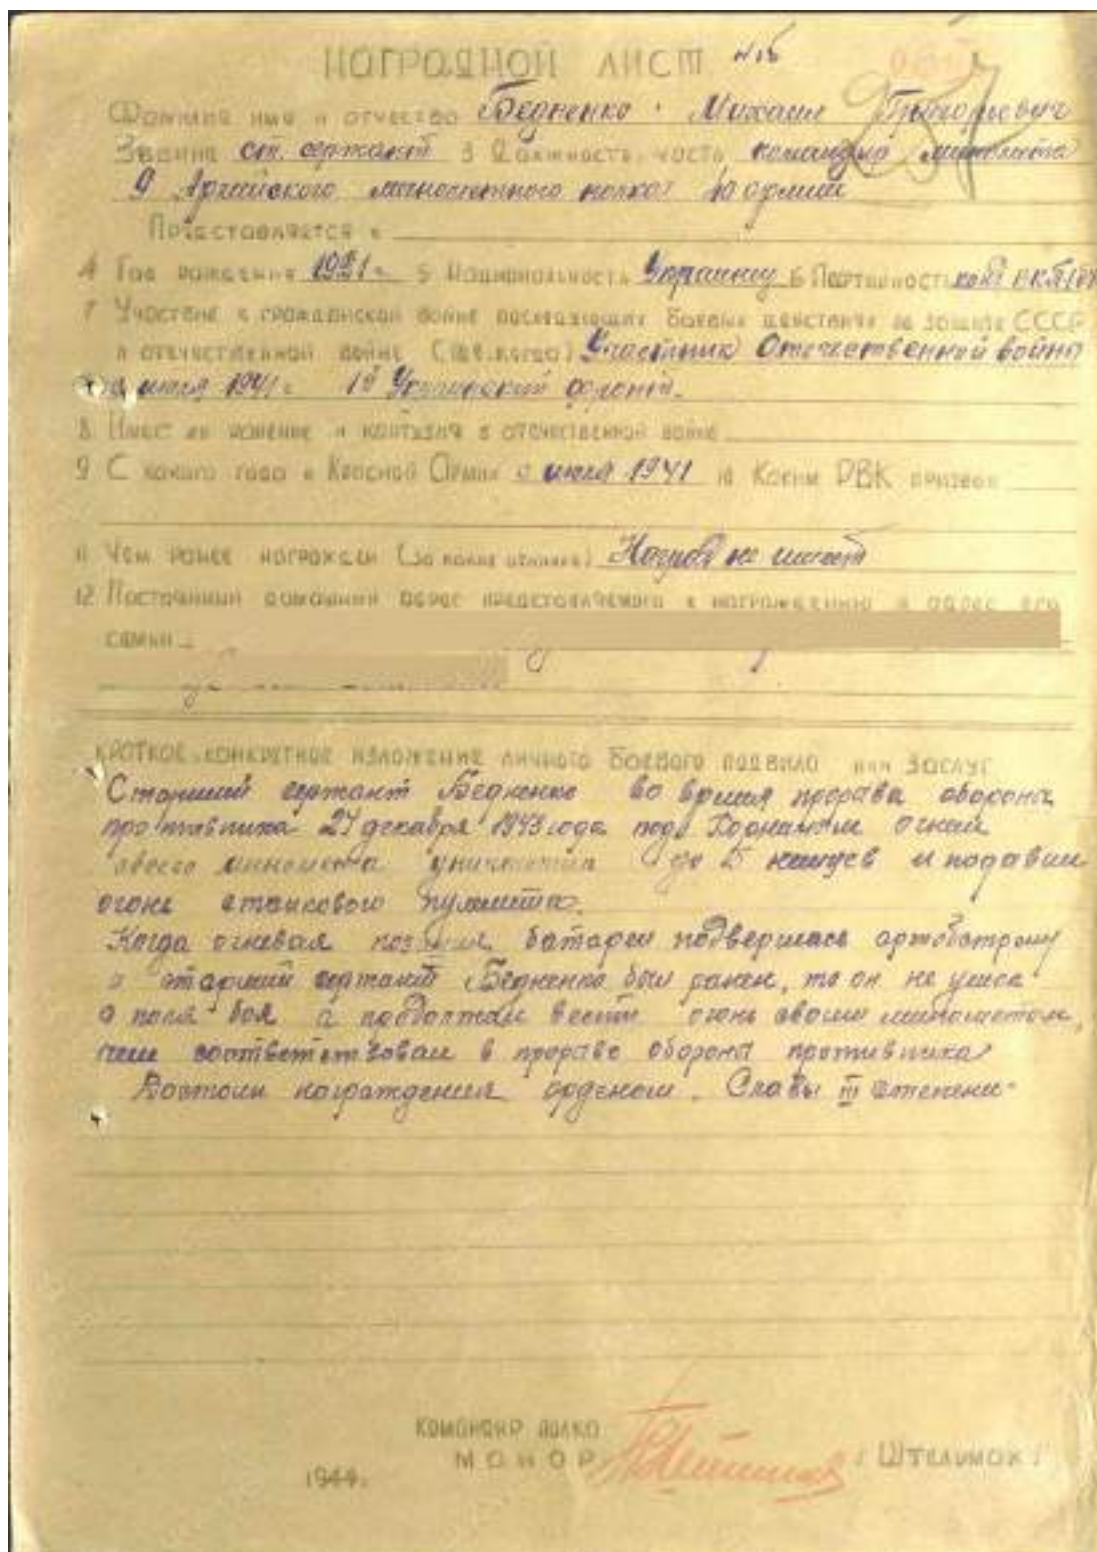 НАГРАДНОЙ ЛИСТ №15
Фамилия имя и отчество Бедненко Михаил Григорьевич
Звание ст. сержант 3 Должность, часть командир миномета
9 Армейского минометного полка 40 армии
Представляется к
4 Год рождения 1921 г. 5 Национальность Украинец 6 Партийность канд. ВКП(б)
7 Участие в гражданской войне последующих боевых действиях по защите СССР
и отечественной войне (где, когда) Участник Отечественной войны
с июля 1941 г. 1й Украинский фронт.
8 Имеет ли ранение и контузия в отечественной войне
9 С какого года в Красной Армии с июля 1941 10 Каким РВК призван
11 Чем ранее награжден (за какие отличия) Наград не имеет
12 Постоянный домашний адрес представляемого к награждению и адрес его
семьи
КРАТКОЕ КОНКРЕТНОЕ ИЗЛОЖЕНИЕ ЛИЧНОГО БОЕВОГО ПОДВИГА ИЛИ ЗАСЛУГ
Старший сержант Бедненко во время прорава оборона
противника 24 декабря 1943 года под огнем
своего миномета уничтожил до 15 немцев и подавил
огонь станкового пулемета.
Когда огневая позиция батареи подверглась артобстрелу
и старший сержант Бедненко был ранен, то он не ушел
с поля боя а продолжал вести огонь своим минометом,
чем соответствовал в прораве оборона противника
Достоин награждения орденом Славы III степени
КОМАНДИР ПОЛКА
МАЙОР / ШТЕЛЬМАХ /
1944г.